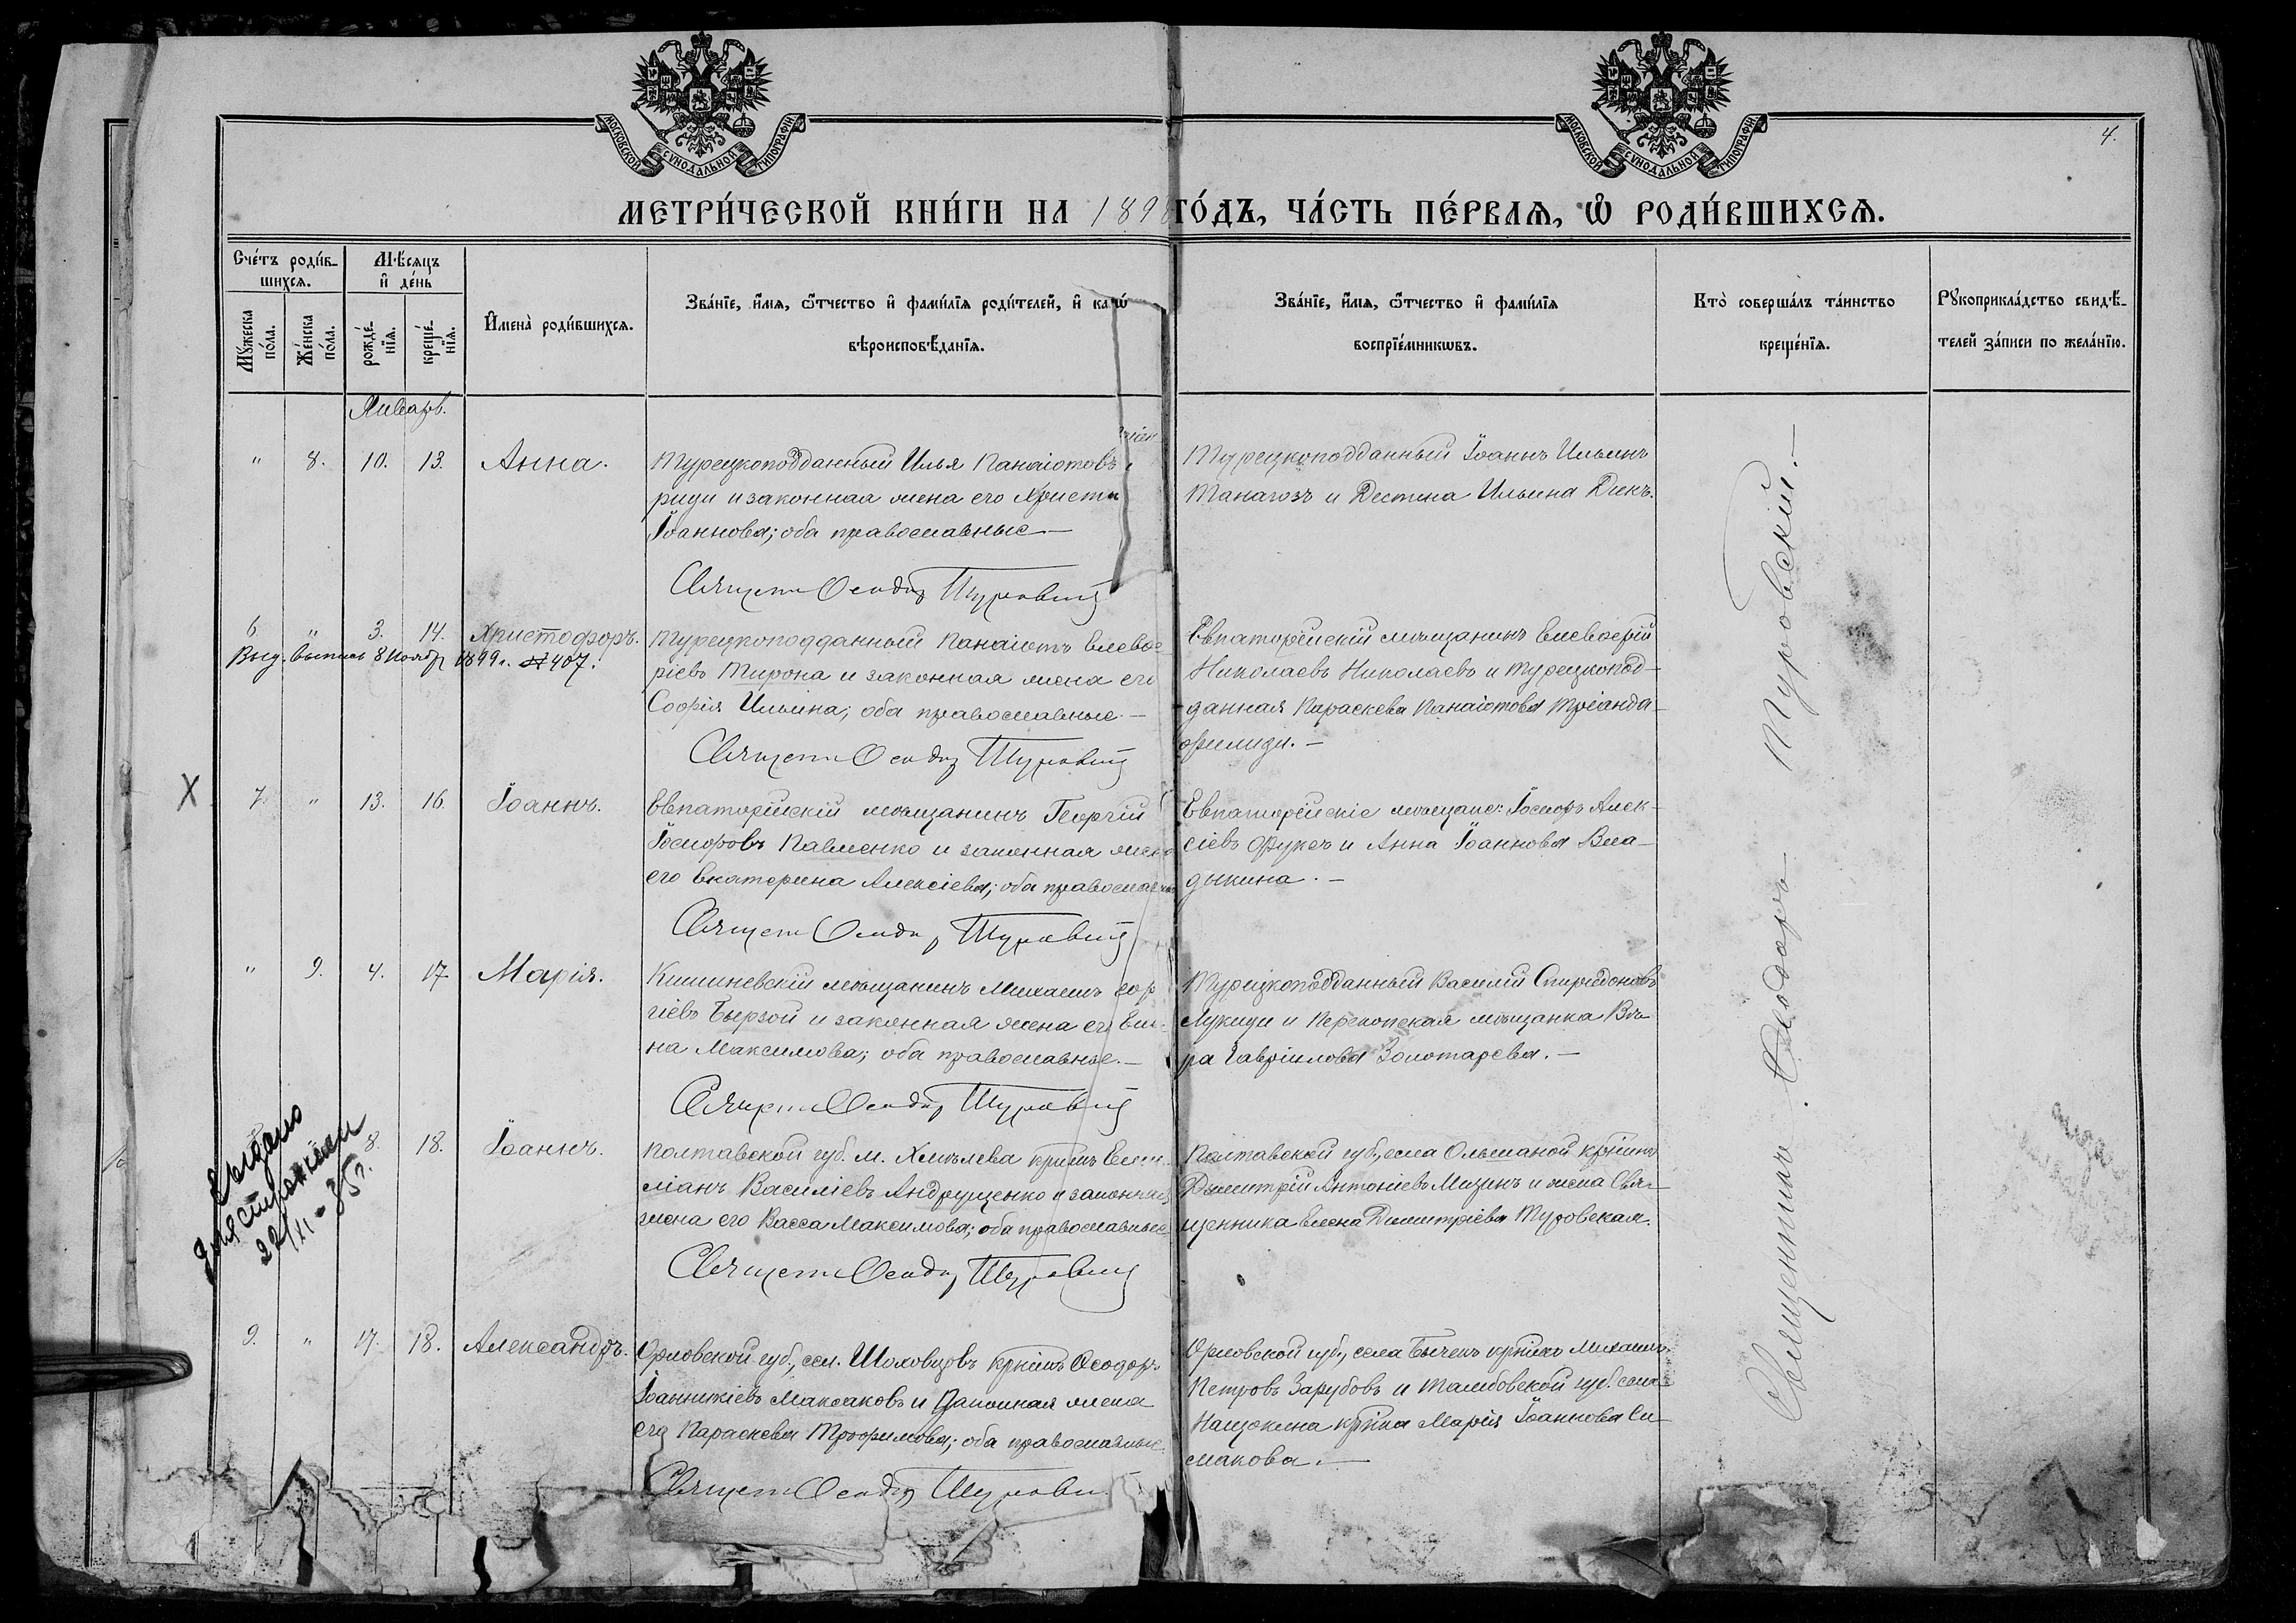 МОСКОВСКОЙ СУНОДАЛЬНОЙ ТИПОГРАФІИ
МОСКОВСКОЙ СУНОДАЛЬНОЙ ТИПОГРАФІИ
4.
МЕТРИ́ЧЕСКОЙ КНИ́ГИ НА 189 ГО́ДЪ, ЧА́СТЬ ПЕ́РВАѦ, Ѡ҆ РОДИ́ВШИХСѦ.
Сче́тъ роди́в-
шихсѧ.
Мꙋ́жеска по́ла.
Же́нска по́ла.
Мѣ́сѧцъ
и҆ де́нь
рожде́-
нїѧ.
креще́-
нїѧ.
И҆мена̀ роди́вшихсѧ.
Зва́нїе, и҆́мѧ, ѻ҆́тчество и҆ фами́лїѧ роди́телей, и҆ како́гѡ
вѣроисповѣ́данїѧ.
Зва́нїе, и҆́мѧ, ѻ҆́тчество и҆ фами́лїѧ
воспрїе́мникѡвъ.
Кто̀ соверша́лъ та́инство
креще́нїѧ.
Рꙋкоприкла́дство свидѣ́-
телей за́писи по жела́нїю.
Январь.
" 8. 10. 13. Анна.
Турецкоподданный Илья Панаіотовъ
риди и законная жена его Христи
Іоаннова; оба православные —
Священ Ѳеодор Туровский
Турецкоподданный Іоаннъ Ильинъ
Танагозъ и Деспина Ильина Дикъ.
6 " 3. 14. Христофоръ.
Выд. выпись 8 Ноябр 1899 г. № 407.
Турецкоподданный Панаіотъ Елевѳе-
ріевъ Тирона и законная жена его
Софія Ильина; оба православные. —
Священ Ѳеодор Туровский
Евпаторійскій мѣщанинъ Елевѳерій
Николаевъ Николаевъ и турецкопод-
данная Параскева Панаіотова Тріанда-
филиди. —
X 7. " 13. 16. Іоаннъ.
Евпаторійскій мѣщанинъ Георгій
Іосифовъ Павленко и законная жена
его Екатерина Алексіева; оба православные
Священ Ѳеодор Туровский
Евпаторійскіе мѣщане: Іосифъ Алек-
сіевъ Фуксъ и Анна Іоаннова Вла-
дыкина. —
" 9. 4. 17. Марія.
Кишиневскій мѣщанинъ Михаилъ Геор
гіевъ Бырзой и законная жена его Еле-
на Максимова; оба православные. —
Священ Ѳеодор Туровский
Турецкоподданный Василій Спиридоновъ
Лукиди и Перекопская мѣщанка Вѣ-
ра Гавріилова Золотарева. —
Выдано
для стражкассы
22/II - 35г.
8. 18. Іоаннъ.
Полтавской губ. м. Хмѣлева кр-нинъ Еми-
ліанъ Василіевъ Андрущенко и законная
жена его Васса Максимова; оба православные
Священ Ѳеодор Туровский
Полтавской губ., села Ольшаной кр-нинъ
Димитрій Антоніевъ Мизинъ и жена Свя-
щенника Елена Димитріева Туровская.
9. " 17. 18. Александръ.
Орловской губ., сел. Шаховцовъ кр-нинъ Ѳеодоръ
Іоанникіевъ Максаковъ и законная жена
его Параскева Трофимова; оба православные.
Священ Ѳеодор Турови
Орловской губ., села Бычекъ кр-нинъ Михаилъ
Петровъ Зарубовъ и Тамбовской губ. села
Нащокина кр-нка Марія Іоаннова Си-
макова. —
Священникъ Ѳеодоръ Туровскій. —